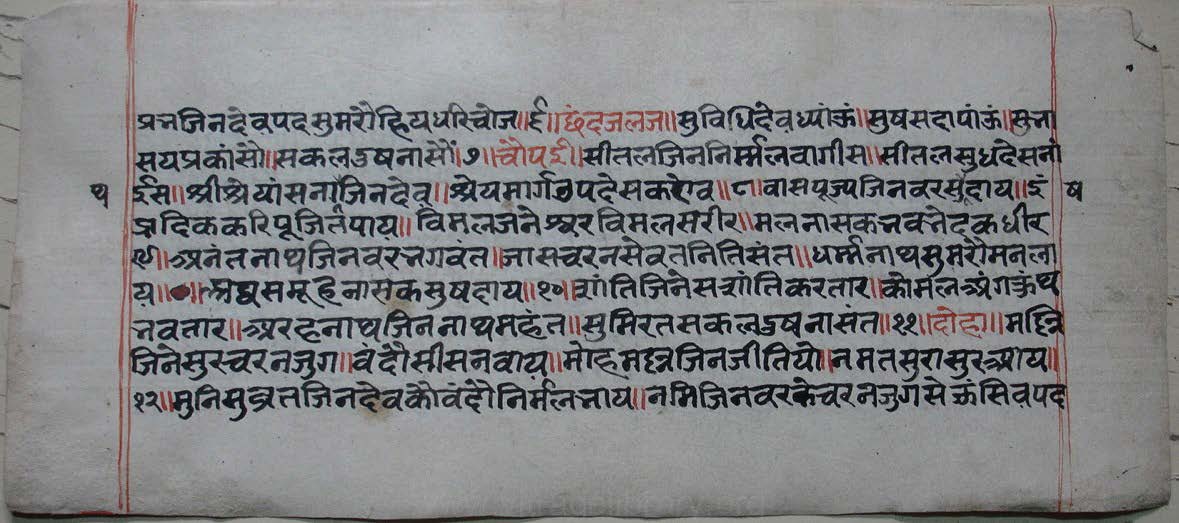 प्रभजिनदेवपद सुमरौं हिय धरि चोज॥६॥छंद जलज॥सुविधिदेव ध्यांऊं॥सुष सदा पांऊं॥सुभा
सय प्रकांसौ॥सकल दुष नासौं॥७॥चौपई॥सीतल जिन निर्म्मल वागीस॥सीतल सुधदेसनां
ईस॥श्री श्रेयांसनाजिनदेव॥श्रेय मार्ग उपदेस करेव॥८॥वासपूज्य जिनवर सुदाय॥इं
द्रादिक करि पूजित पाय॥विमल जनेश्वर विमल सरीर॥मल नासक भव भेदक धीर
॥९॥अनंतनाथ जिनवर भगवंत॥जास चरन सेवत निति संत॥धर्म्मनाथ सुमरौं मन ला
य॥अघ समूह नासक सुषदाय॥१०॥शांति जिनेस शांति करतार॥कोमल अंग कुंथ
भवतार॥अरहनाथ जिननाथ महंत॥सुमिरत सकल दुष नासंत॥११॥दोहा॥मल्लि
जिनेसुर चरन जुग॥वंदौं सीस नवाय॥मोह मल्ल जिन जीतियो॥नमत सुरासुर आय॥
१२॥मुनिसुव्रत जिनदेव कौ वंदौं निर्मल भाय॥नमि जिनवर के चरन जुग सेऊं सिवपद